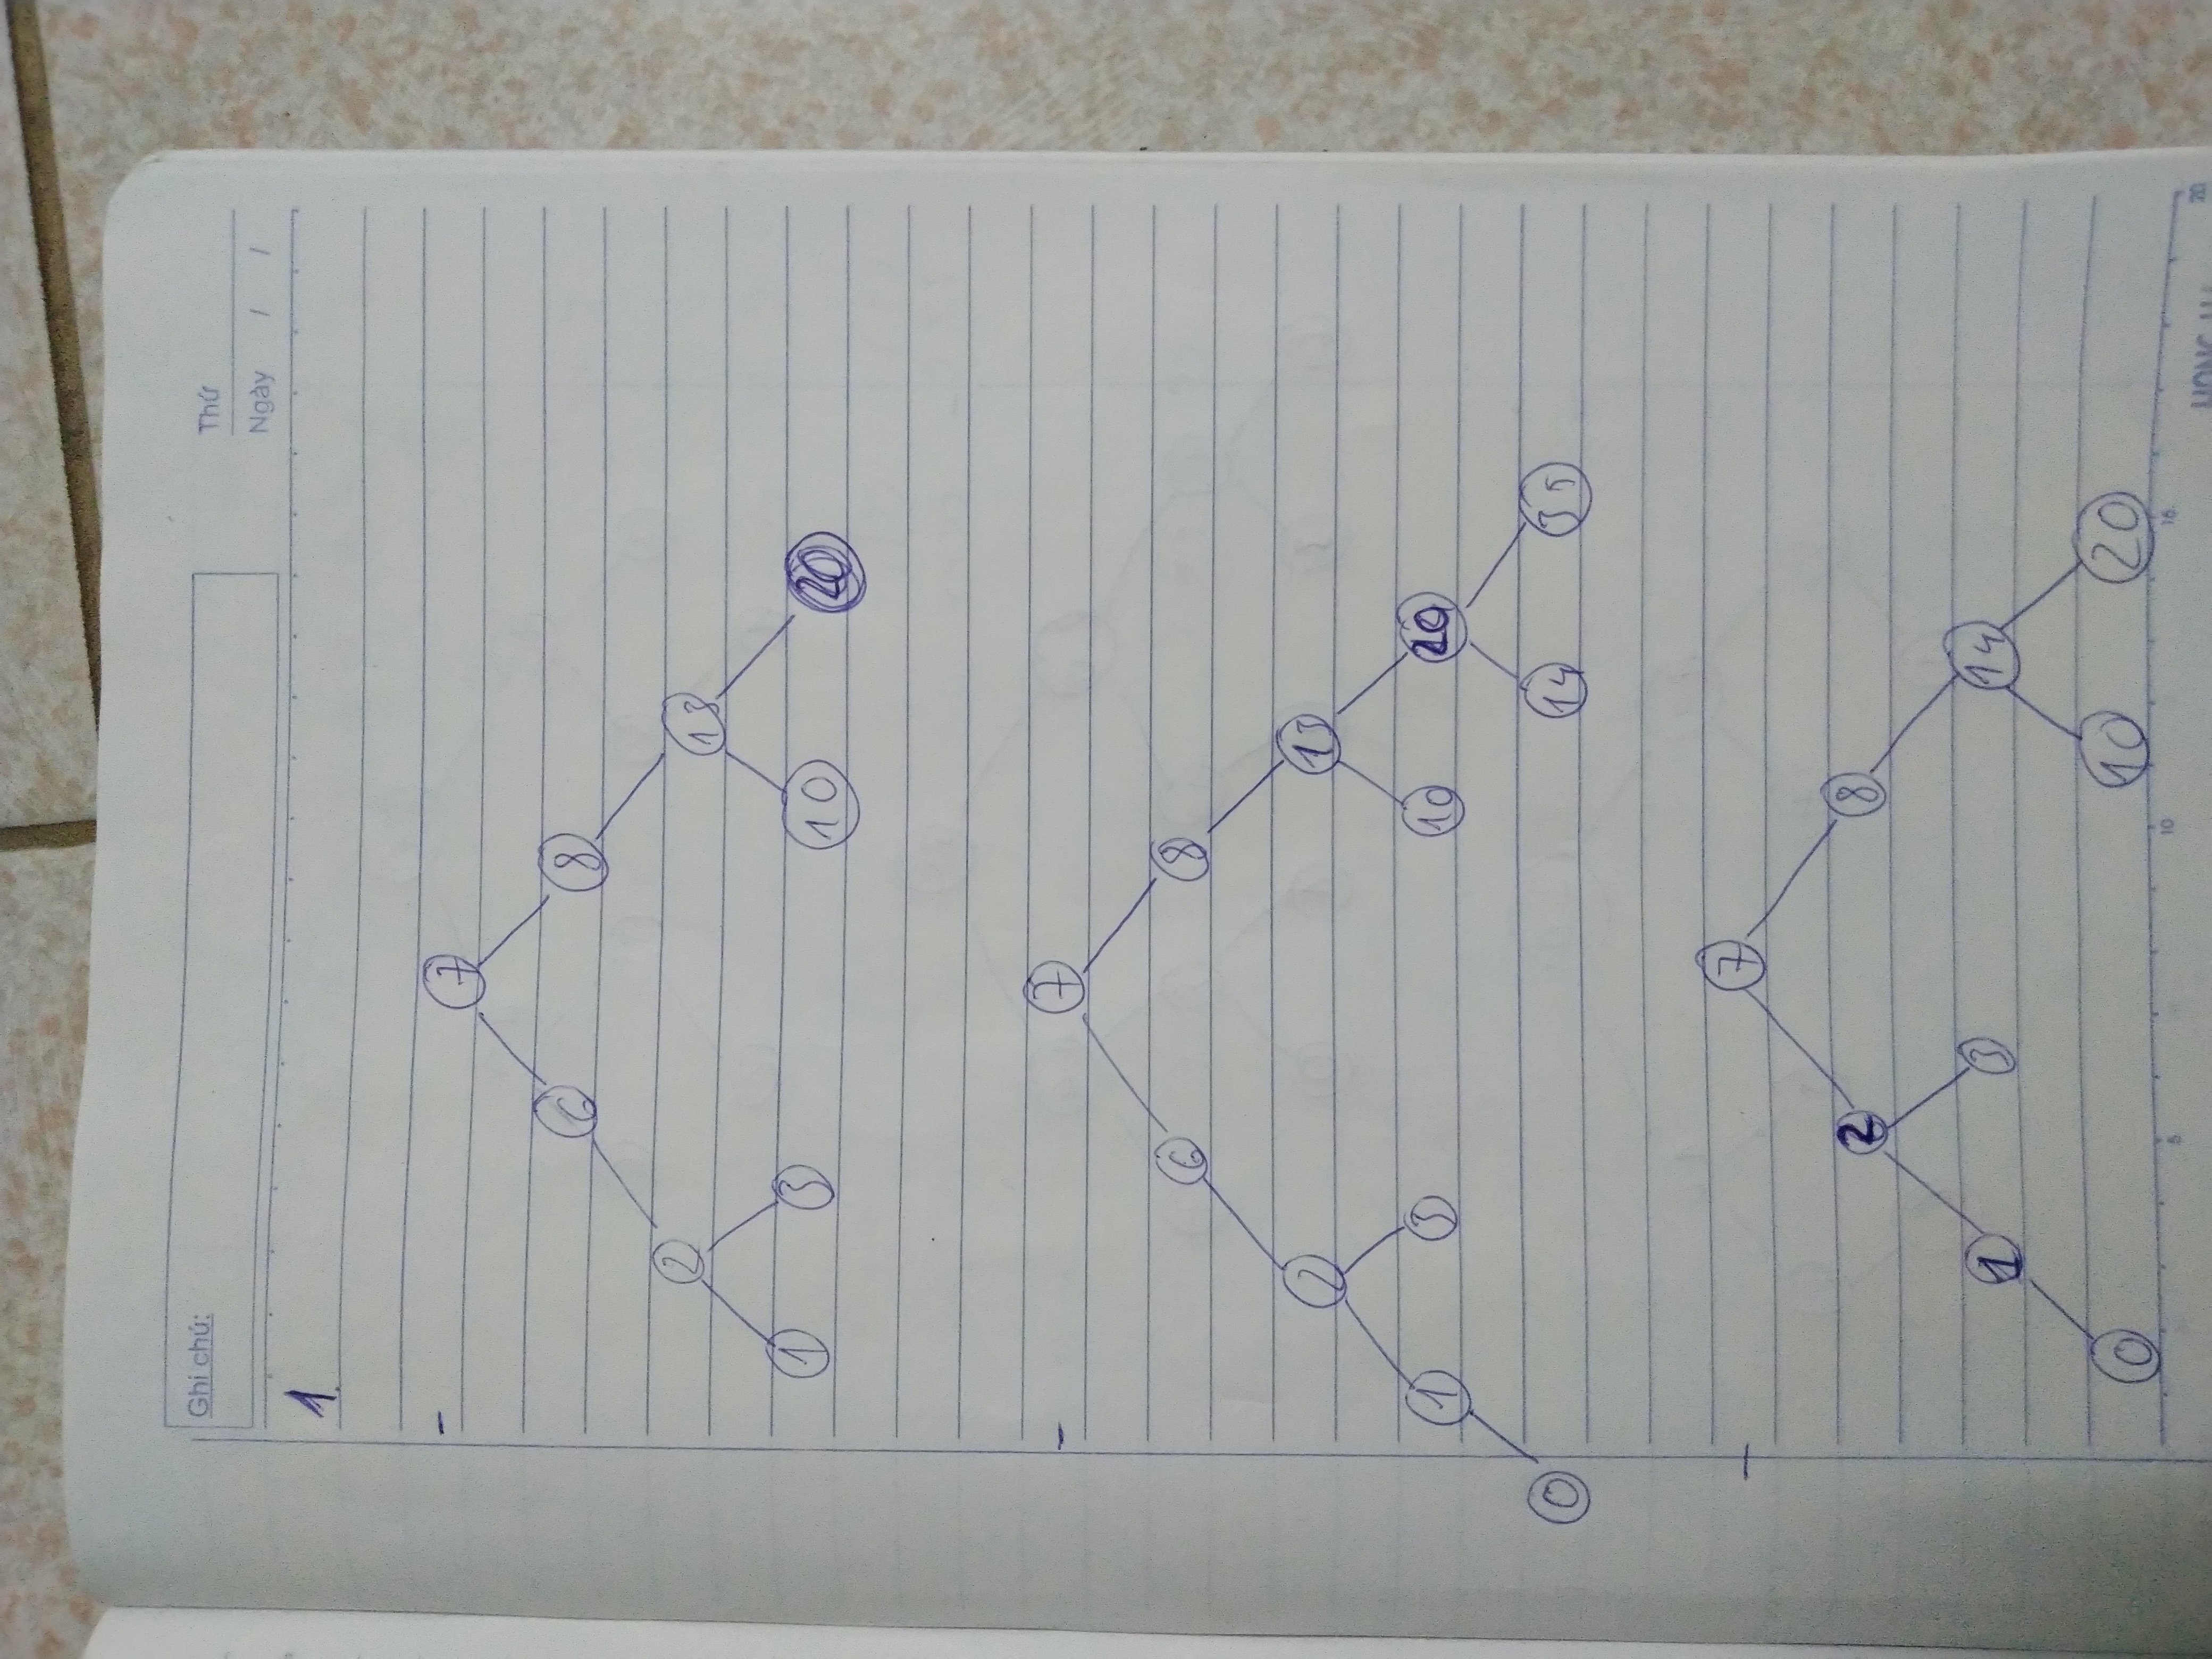 Ghi chú:
Thứ
Ngày / /
1.
- 7
6 8
2 13
1 3 10 20
- 7
6 8
2 13
1 3 10 20
0 14 35
- 7
2 8
1 3 14
0 10 20
5 10 15 20